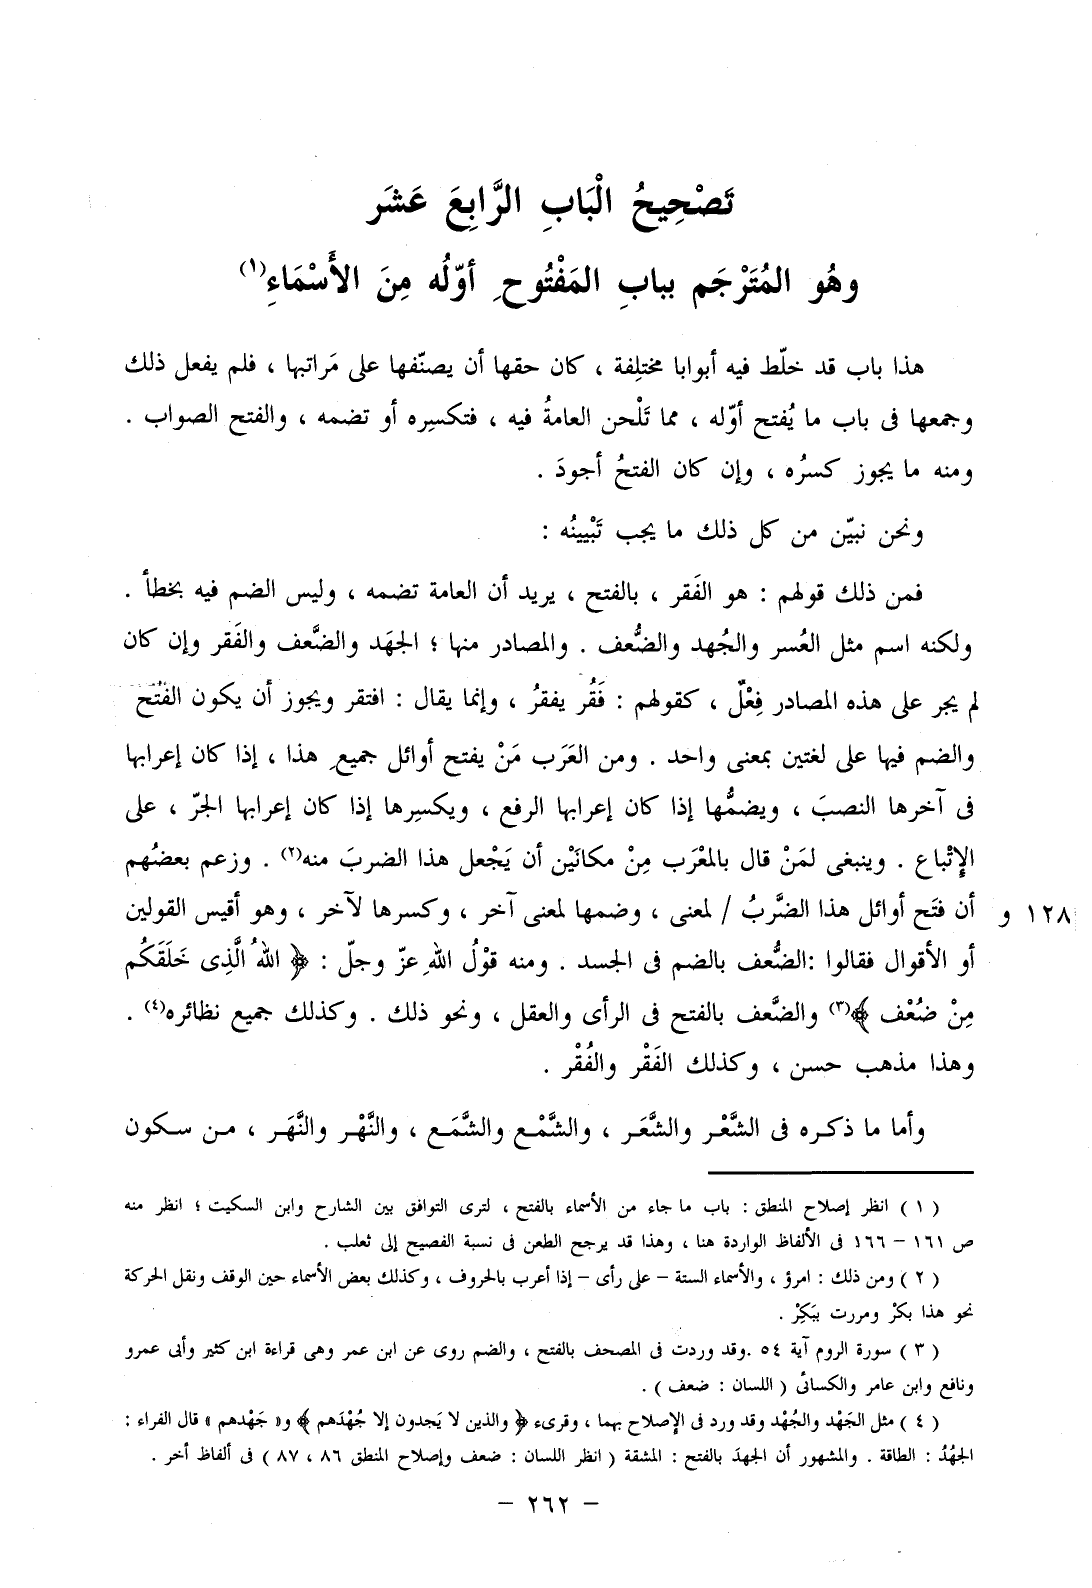 تَصْحِيحُ الْبَابِ الرَّابِعَ عَشَر
وهُو المُتَرْجَم ببابِ المَفْتُوحِ أوّلُه مِنَ الأَسْمَاءِ(١)
هذا باب قد خلّط فيه أبوابا مختلِفة ، كان حقها أن يصنّفها على مَراتبها ، فلم يفعل ذلك
وجمعها فى باب ما يُفتح أوّله ، مما تَلْحن العامةُ فيه ، فتكسِره أو تضمه ، والفتح الصواب .
ومنه ما يجوز كسرُه ، وإن كان الفتحُ أجودَ .
ونحن نبيّن من كل ذلك ما يجب تَبْيينُه :
فمن ذلك قولهم : هو الفَقر ، بالفتح ، يريد أن العامة تضمه ، وليس الضم فيه بخطأ .
ولكنه اسم مثل العُسر والجُهد والضُّعف . والمصادر منها ؛ الجَهَد والضَّعف والفَقر وإن كان
لم يجر على هذه المصادر فِعْلٌ ، كقولهم : فَقُر يفقرُ ، وإنما يقال : افتقر ويجوز أن يكون الفَتْحُ
والضم فيها على لغتين بمعنى واحد . ومن العَرَب مَنْ يفتح أوائل جميعِ هذا ، إذا كان إعرابها
فى آخرها النصبَ ، ويضمُّها إذا كان إعرابها الرفع ، ويكسِرها إذا كان إعرابها الجرّ ، على
الإِتْباع . وينبغى لمَنْ قال بالمعْرَب مِنْ مكانَيْن أن يَجْعل هذا الضربَ منه(٢) . وزعم بعضُهم
أن فتَح أوائل هذا الضَّربُ / لمعنى ، وضمها لمعنى آخر ، وكسرها لآخر ، وهو أقيس القولين
١٢٨ و
أو الأقوال فقالوا :الضُّعف بالضم فى الجسد . ومنه قوْلُ اللهِ عزّ وجلّ : ﴿ اللهُ الَّذِى خَلَقَكُم
مِنْ ضُعْف ﴾(٣) والضَّعف بالفتح فى الرأى والعقل ، ونحو ذلك . وكذلك جميع نظائره(٤) .
وهذا مذهب حسن ، وكذلك الفَقْر والفُقْر .
وأما ما ذكره فى الشَّعْر والشَّعَر ، والشَّمْع والشَّمَع ، والنَّهْر والنَّهَر ، من سكون
( ١ ) انظر إصلاح المنطق : باب ما جاء من الأسماء بالفتح ، لترى التوافق بين الشارح وابن السكيت ؛ انظر منه
ص ١٦١ – ١٦٦ فى الألفاظ الواردة هنا ، وهذا قد يرجح الطعن فى نسبة الفصيح إلى ثعلب .
( ٢ ) ومن ذلك : امرؤ ، والأسماء الستة – على رأى – إذا أعرب بالحروف ، وكذلك بعض الأسماء حين الوقف ونقل الحركة
نحو هذا بكرْ ومررت بِبَكِرْ .
( ٣ ) سورة الروم آية ٥٤ .وقد وردت فى المصحف بالفتح ، والضم روى عن ابن عمر وهى قراءة ابن كثير وأبى عمرو
ونافع وابن عامر والكسائى ( اللسان : ضعف ) .
( ٤ ) مثل الجَهْد والجُهْد وقد ورد فى الإصلاح بهما ، وقرىء ﴿ والذين لا يَجدون إلا جُهْدَهم ﴾ و« جَهْدهم » قال الفراء :
الجُهْدُ : الطاقة . والمشهور أن الجهدَ بالفتح : المشقة ( انظر اللسان : ضعف وإصلاح المنطق ٨٦ ، ٨٧ ) فى ألفاظ أخر .
– ٢٦٢ –